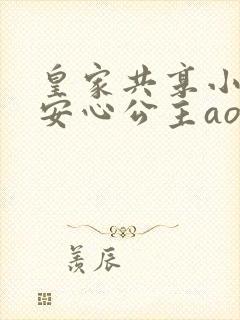 皇家共享小
安心公主ao
羡辰